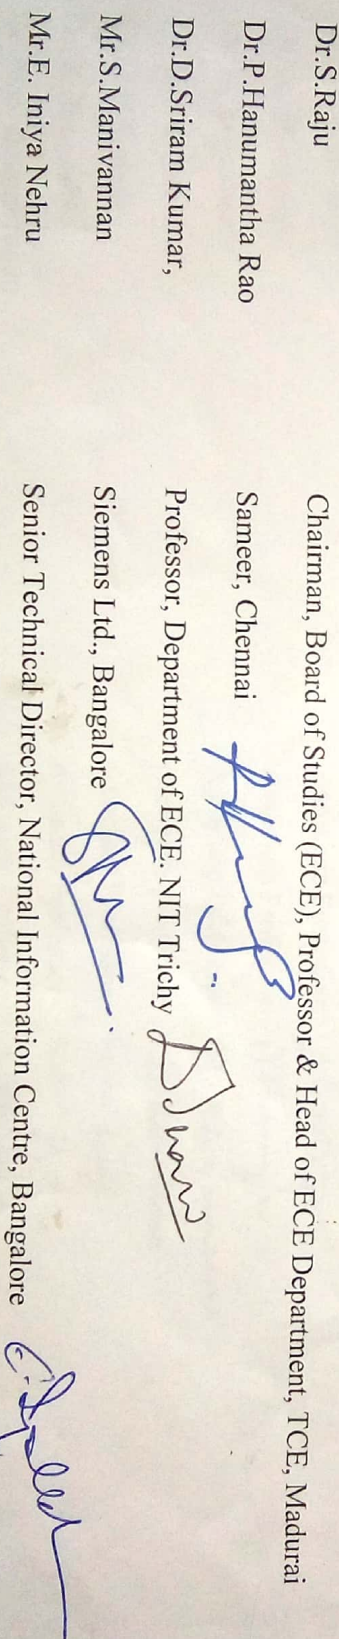 Dr.S.Raju Chairman, Board of Studies (ECE), Professor & Head of ECE Department, TCE, Madurai
Dr.P.Hanumantha Rao Sameer, Chennai
Dr.D.Sriram Kumar, Professor, Department of ECE. NIT Trichy
Mr.S.Manivannan Siemens Ltd., Bangalore
Mr.E. Iniya Nehru Senior Technical Director, National Information Centre, Bangalore